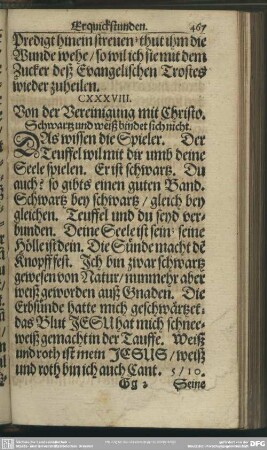 Erquickstunden. 467
Predigt hinein streuen: thut ihm die
Wunde wehe / so wil ich sie mit dem
Zucker deß Evangelischen Trostes
wieder zuheilen.
CXXXVIII.
Von der Vereinigung mit Christo.
Schwartz und weiß bindet sich nicht.
DAs wissen die Spieler. Der
Teuffel wil mit dir umb deine
Seele spielen. Er ist schwartz. Du
auch? so gibts einen guten Band.
Schwartz bey schwartz / gleich bey
gleichen. Teuffel und du seyd ver-
bunden. Deine Seele ist sein: seine
Hölle ist dein. Die Sünde macht dē
Knopff fest. Ich bin zwar schwartz
gewesen von Natur / nunmehr aber
weiß geworden auß Gnaden. Die
Erbsünde hatte mich geschwärtzet:
das Blut JESU hat mich schnee-
weiß gemacht in der Tauffe. Weiß
und roth ist mein JESUS / weiß
und roth bin ich auch Cant. 5/10.
Gg 2 Seine